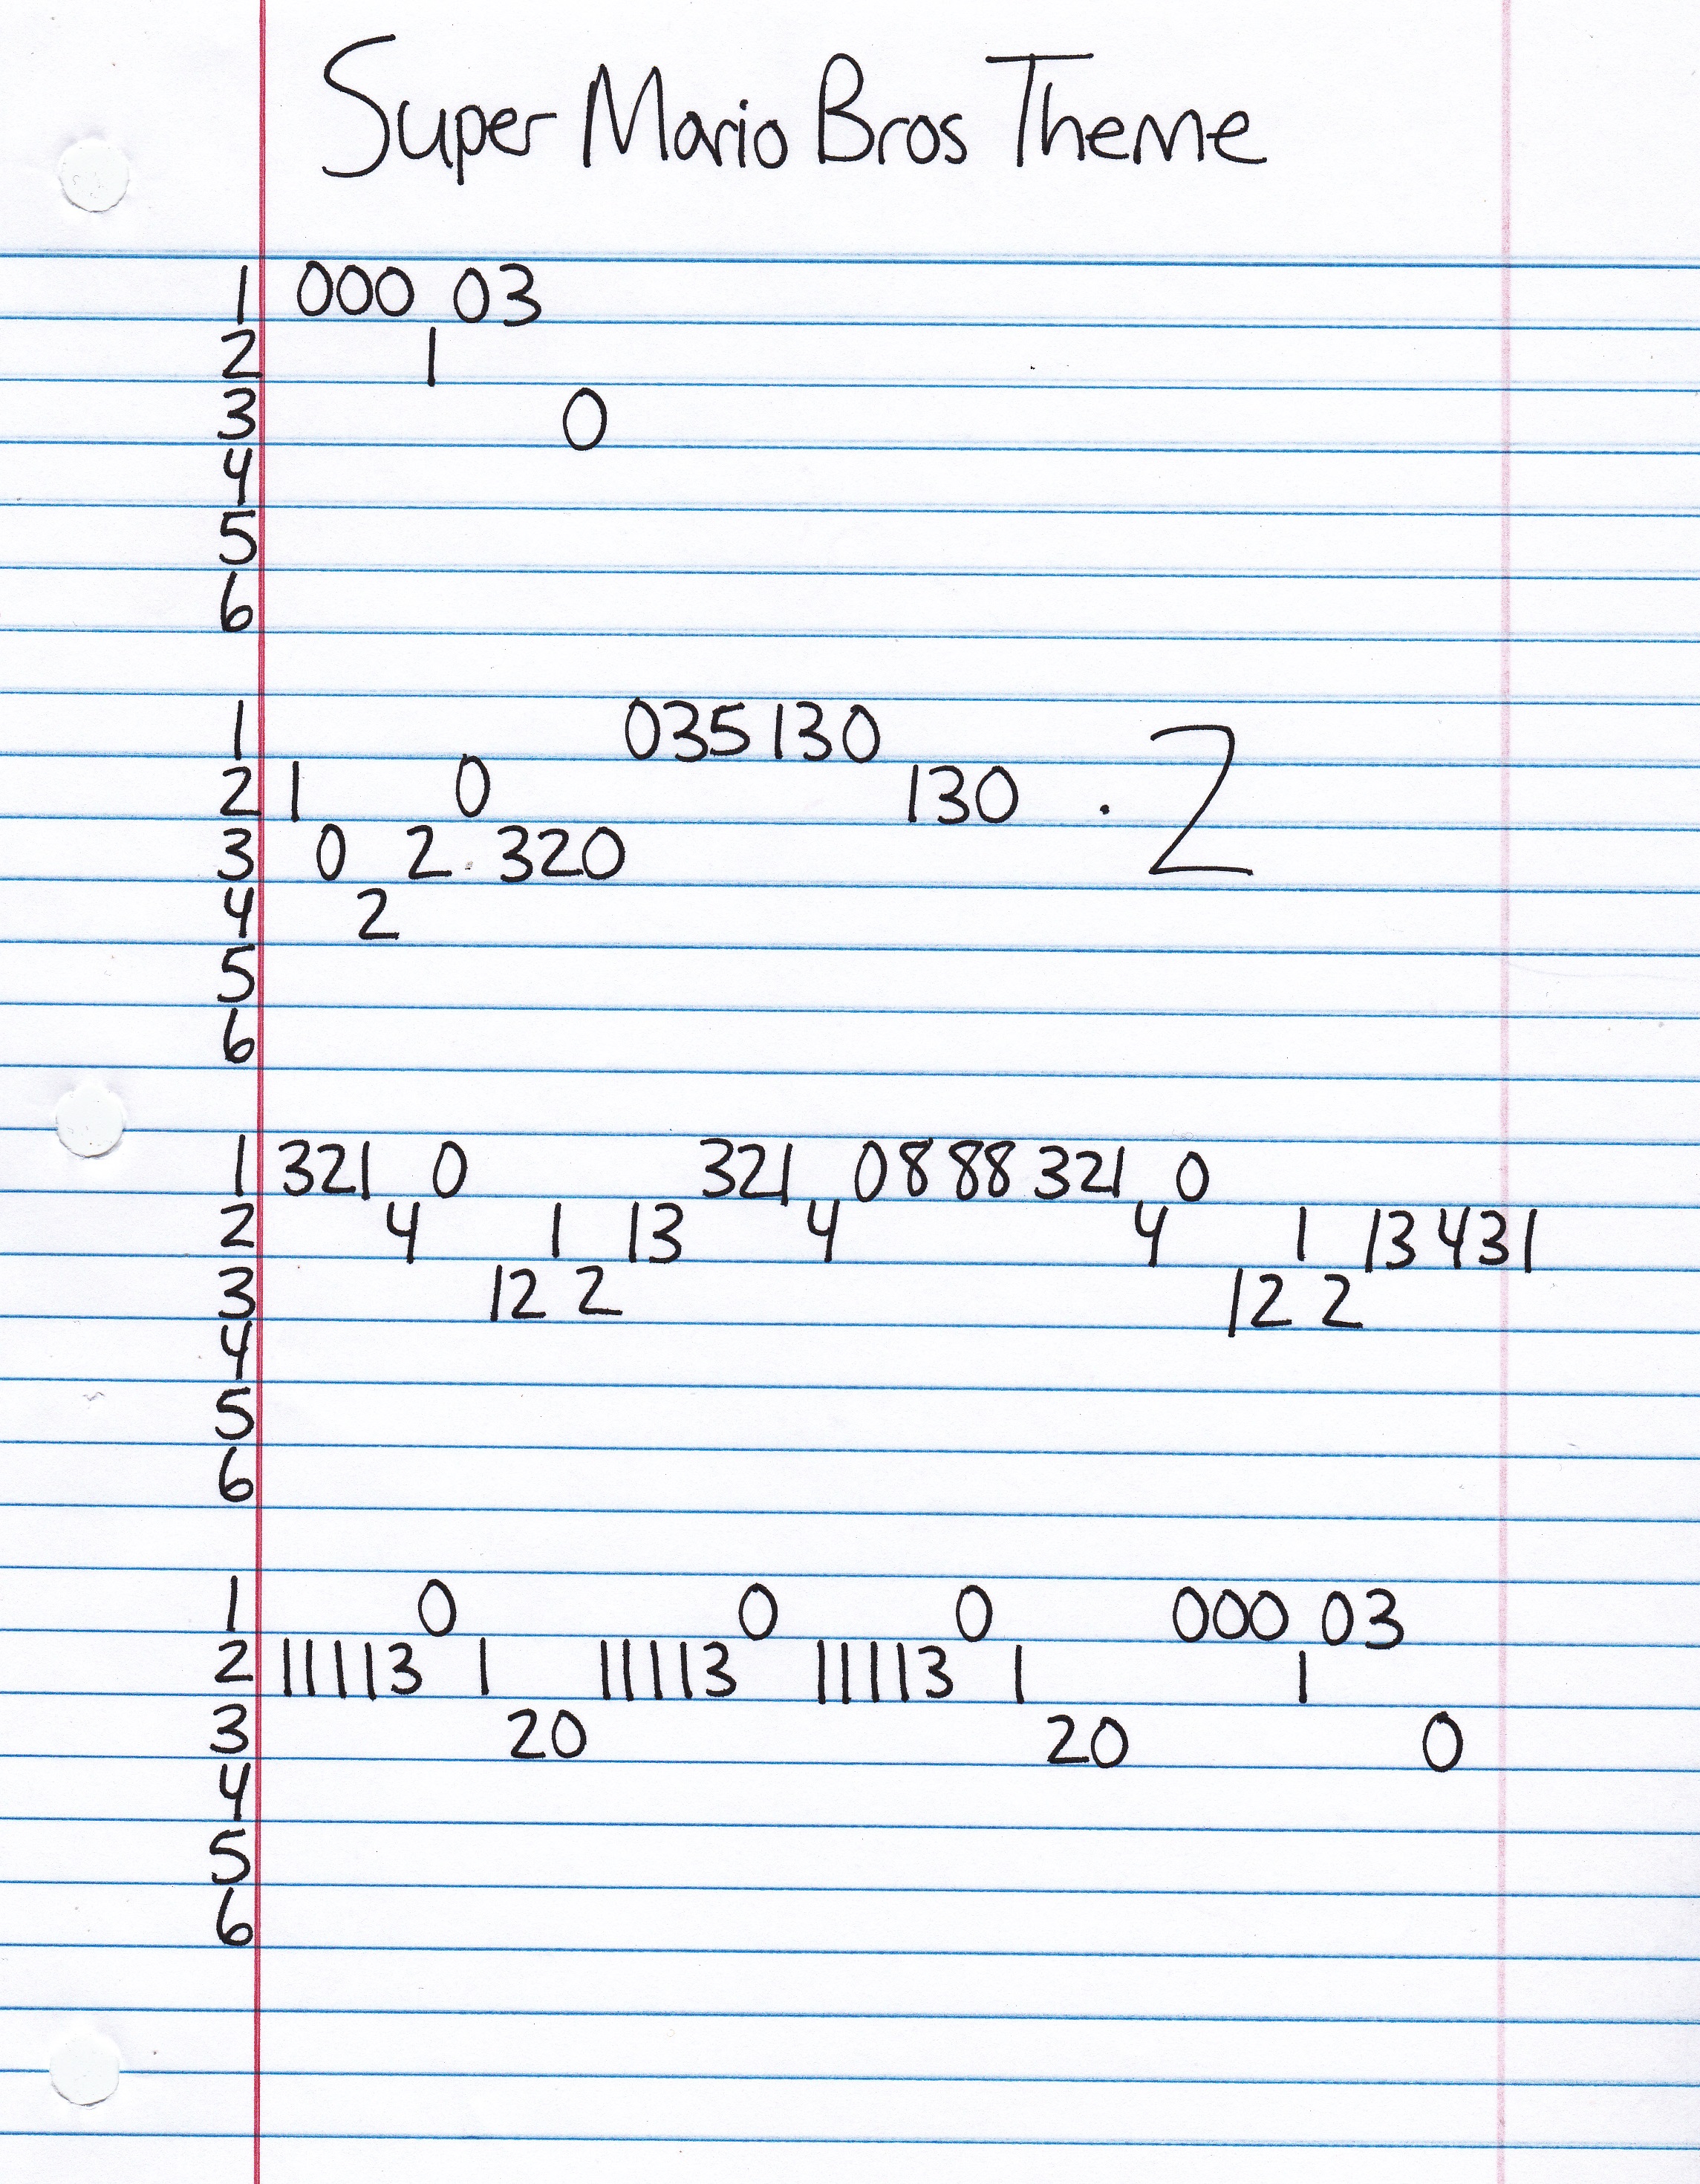 Super Mario Bros Theme
1 000 03
2 1
3 0
4
5
6
1 035 130
2 1 0 130 . 2
3 0 2 320
4 2
5
6
1 321 0 321 0888 321 0
2 4 1 13 4 4 1 13 431
3 12 2 12 2
4
5
6
1 0 0 0 000 03
2 11113 1 11113 11113 1 1
3 20 20 0
4
5
6